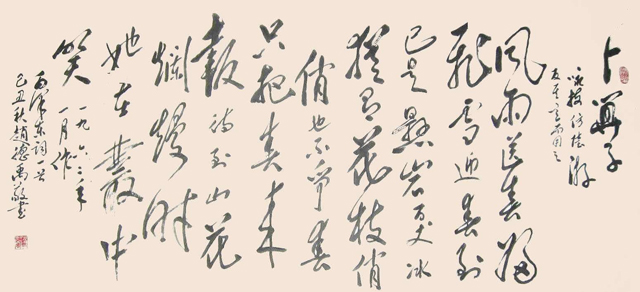 卜算子
咏梅仿陆游
反其意而用之
风雨送春归
飛雪迎春到
已是悬岩百丈冰
犹有花枝俏
俏也不争春
只把春来
報待到山花
烂熳时
她在叢中
笑
一九六二年
一月作
毛泽东词一首
己丑秋赵德禹敬书